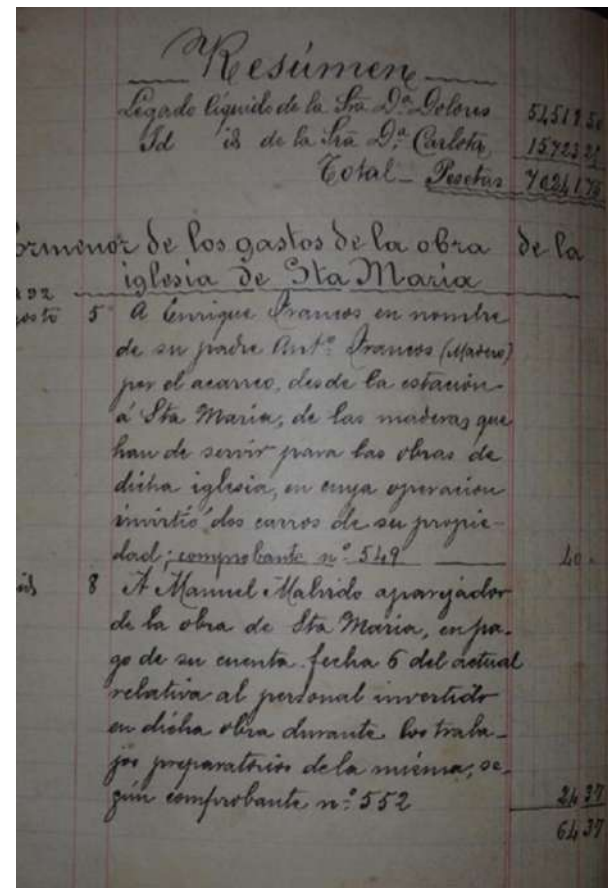 Resúmen
Legado líquido de la Sra Dª Dolores 54518 50
Id id de la Sra Dª Carlota 15723 25
Total - Pesetas 70241 75
ormenor de los gastos de la obra de la
iglesia de Sta Maria
5 A Enrique Francos en nombre
de su padre Antº Francos (Madero)
por el acarreo, desde la estación
á Sta Maria, de las maderas que
han de servir para las obras de
dicha iglesia, en cuya operacion
invirtió dos carros de su propie-
dad; comprobante nº 549 40 -
id 8 A Manuel Malvido aparejador
de la obra de Sta Maria, en pa-
go de su cuenta fecha 6 del actual
relativa al personal invertido
en dicha obra durante los traba-
jos preparatorios de la misma, se-
gún comprobante nº 552 24 37
64 37